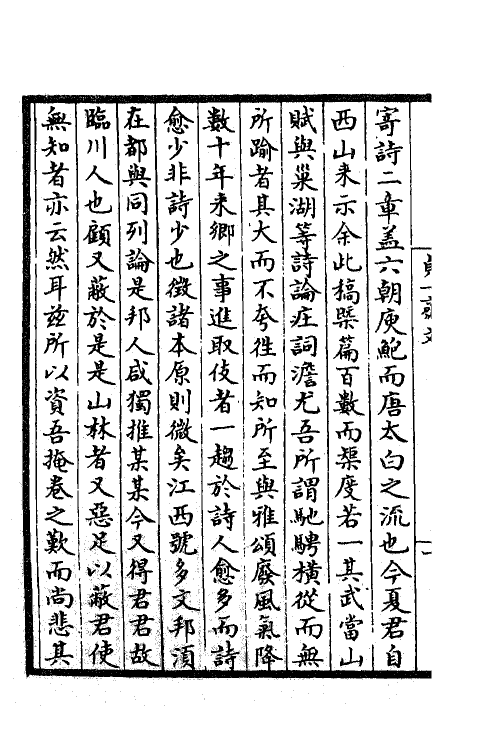 寄詩二章盖六朝庾鮑而唐太白之流也今夏君自
西山来示余此稿槩篇百數而榘度若一其武當山
賦與巢湖等詩論庄詞澹尤吾所謂馳騁橫從而無
所踰者具大而不夸徃而知所至與雅頌廢風氣降
數十年来鄉之事進取伎者一趨於詩人愈多而詩
愈少非詩少也徵諸本原則微矣江西號多文邦湏
在都與同列論是邦人咸獨推某某今又得君君故
臨川人也顧又蔽於是是山林者又惡足以蔽君使
無知者亦云然耳兹所以資吾掩卷之歎而尚悲其